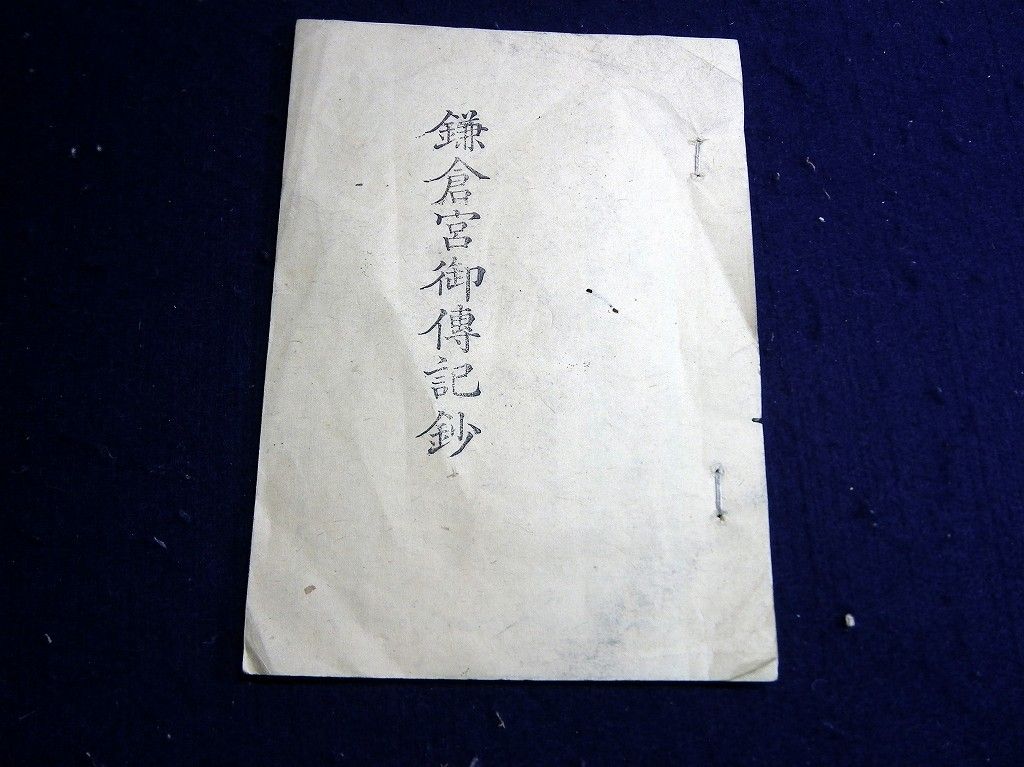 鎌倉宮御傳記鈔